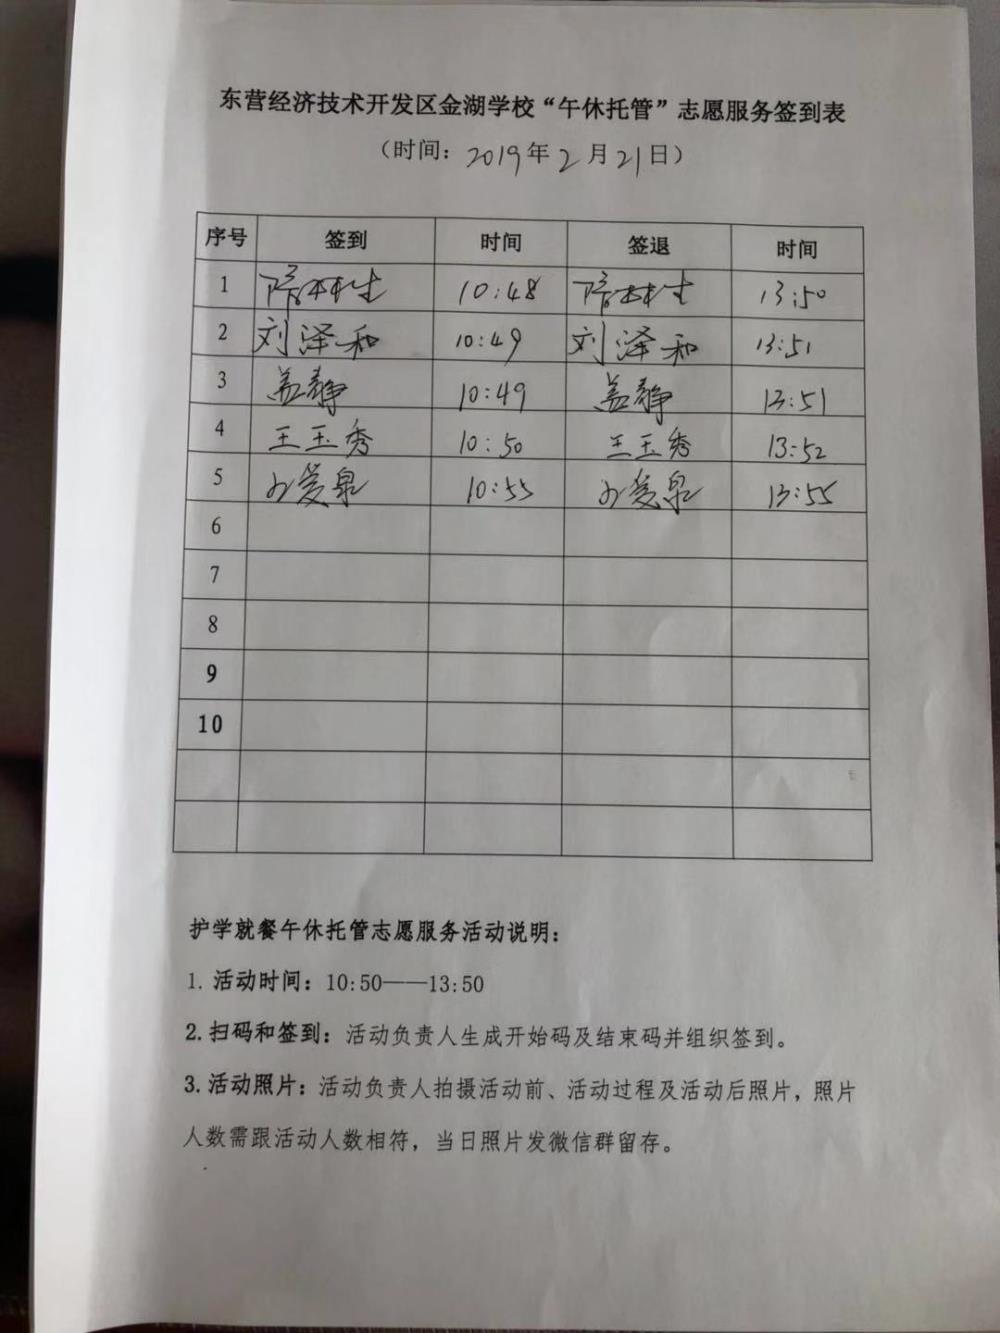 东营经济技术开发区金湖学校“午休托管”志愿服务签到表
（时间：2019年2月21日）
序号 签到 时间 签退 时间
1 10:48 13:50
2 刘泽和 10:49 刘泽和 13:51
3 盖静 10:49 盖静 13:51
4 王玉秀 10:50 王玉秀 13:52
5 10:55 13:55
6
7
8
9
10
护学就餐午休托管志愿服务活动说明：
1. 活动时间：10:50——13:50
2. 扫码和签到：活动负责人生成开始码及结束码并组织签到。
3. 活动照片：活动负责人拍摄活动前、活动过程及活动后照片，照片
人数需跟活动人数相符，当日照片发微信群留存。